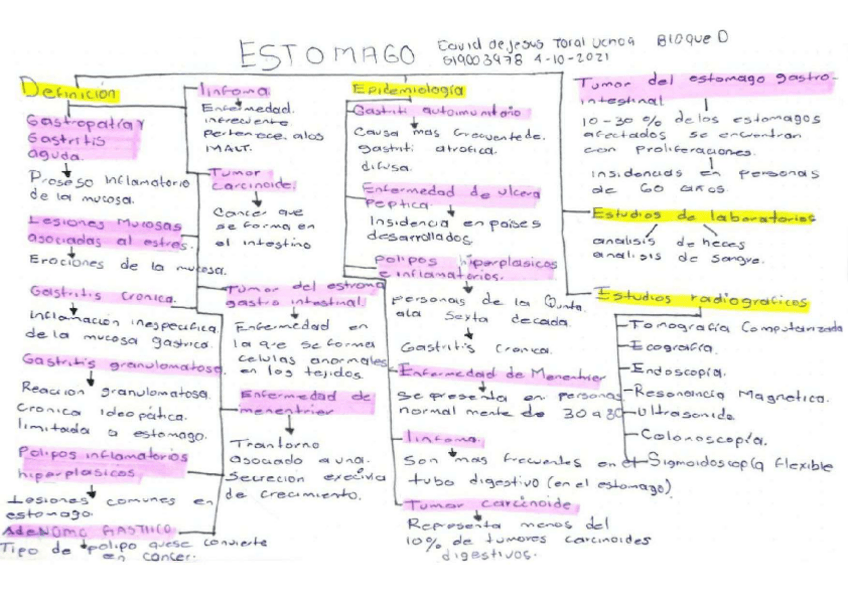 ESTOMAGO
David de Jesus Toral Uchoa Bloque D
619003978 4-10-2021
Definición
Gastropatía y
Gastritis
aguda.
Proseso Inflamatorio
de la mucosa.
Lesiones Mucosas
asociadas al estrés.
Erociones de la mucosa.
Gastritis Cronica.
Inflamación inespecifica
de la mucosa gastrica.
Gastritis granulomatosa.
Reaccion granulomatosa.
Cronica ideopática.
limitada a estomago.
Polipos inflamatorios
hiperplasicos.
Lesiones comunes en
estomago.
Tipo de polipo quese convierte
en cáncer.
linfoma.
Enfermedad.
infrecuente
pertenece alos
MALT.
Tumor
carcinoide.
Cancer que
se forma en
el intestino
Tumor del estroma
gastro intestinal
Enfermedad en
la que se forma
celulas anormales
en los tejidos.
Enfermedad de
menentrier
Trantorno
asociado auna.
Secrecion
de crecimiento.
Epidemiología
Gastiti
Causa mas frecuente de.
gastiti atrofica.
difusa.
Enfermedad de ulcera
Peptica.
Insidencia en países
desarrollados.
Polipos hiperplasicos
e inflamatorios.
Personas de la Quinta.
ala Sexta decada.
Gastritis Cronica.
Enfermedad de Menentrier
Se presenta en personas
normal mente de 30 a 80
linfoma.
Son mas frecuentes en el
tubo digestivo (en el estomago)
Tumor carcinoide
Representa menos del
10% de tumores carcinoides
digestivos.
Tumor del estomago gastro-
intestinal
10-30 % de los estomagos
afectados se encuentran
con proliferaciones.
Insidencias en personas
de 60 años.
Estudios de laboratorios
analisis de heces
analisis de sangre.
Estudios radiograficos
Tomografía Computarizada
Ecografía.
Endoscopía.
Resonancia Magnetica.
Ultrasonido
Colonoscopía.
Sigmoidoscopía flexible